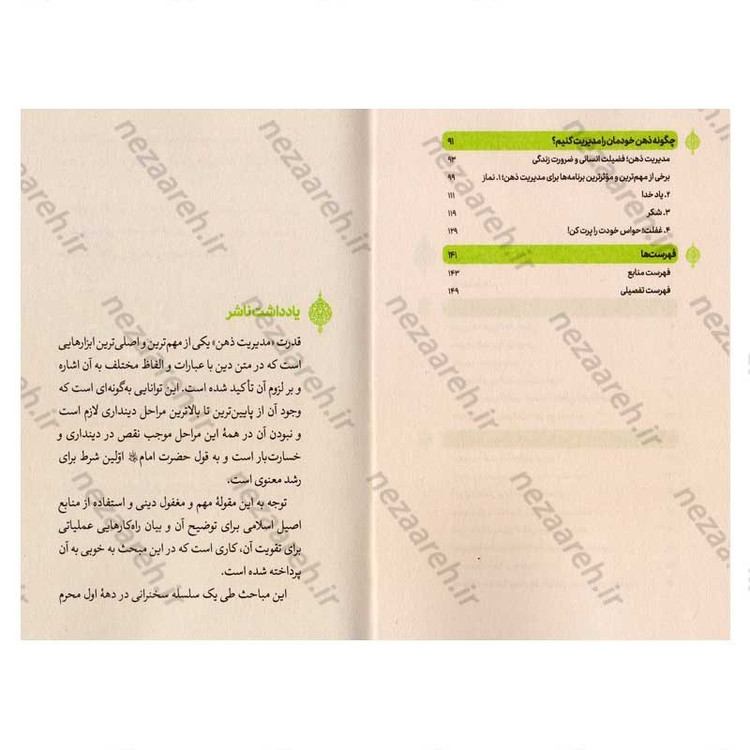 چگونه ذهن خودمان را مدیریت کنیم؟ ۹۱
مدیریت ذهن؛ فضیلت انسانی و ضرورت زندگی ۹۳
برخی از مهم‌ترین و مؤثرترین برنامه‌ها برای مدیریت ذهن؛ ۱. نماز ۹۹
۲. یاد خدا ۱۱۱
۳. شکر ۱۱۹
۴. غفلت؛ حواس خودت را پرت کن! ۱۲۹
فهرست‌ها ۱۴۱
فهرست منابع ۱۴۳
فهرست تفصیلی ۱۴۹
یادداشت ناشر
قدرت «مدیریت ذهن» یکی از مهم‌ترین و اصلی‌ترین ابزارهایی
است که در متن دین با عبارات و الفاظ مختلف به آن اشاره
و بر لزوم آن تأکید شده است. این توانایی به‌گونه‌ای است که
وجود آن از پایین‌ترین تا بالاترین مراحل دینداری لازم است
و نبودن آن در همهٔ این مراحل موجب نقص در دینداری و
خسارت‌بار است و به قول حضرت امام اوّلین شرط برای
رشد معنوی است.
توجه به این مقولهٔ مهم و مغفول دینی و استفاده از منابع
اصیل اسلامی برای توضیح آن و بیان راه‌کارهایی عملیاتی
برای تقویت آن، کاری است که در این مبحث به خوبی به آن
پرداخته شده است.
این مباحث طی یک سلسله سخنرانی در دههٔ اول محرم
nezaareh.ir
nezaareh.ir
nezaareh.ir
nezaareh.ir
nezaareh.ir
nezaareh.ir
nezaareh.ir
nezaareh.ir
nezaareh.ir